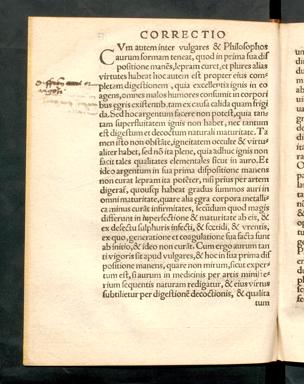 CORRECTIO
CVm autem inter vulgares & Philosophos
aurum formam teneat, quod in prima sua dis
positione manẽs, lepram curet, et plures alias
virtutes habeat hoc autem est propter eius com
pletam digestionem, quia excellentia ignis in eo
agens, omnes malos humores consumit in corpori
bus egris existentib. tam ex causa calida quam frigi
da. Sed hoc argentum facere non potest, quia tan
tam superfluitatem ignis non habet, nec tantum
est digestum et decoctum naturali maturitate. Ta
men isto non obstãte, igneitatem occulte & virtua
liter habet, sed nõ ita plene, quia talis ignis non
facit tales qualitates elementales sicut in auro. Et
ideo argentum in sua prima dispositione manens
non curat lepram ita potẽter, nisi prius per artem
digerat, quousq; habeat gradus summos auri in
omni maturitate, quare alia egra corpora metalli
ca minus curãt infirmitates, secũdum quod magis
differunt in perfectione & maturitate ab eis, &
ex defectu sulphuris infecti, & fœtidi, & vrentis,
ex quo, generatione et coagulatione sua facta sunt
ab initio, & ideo non curãt. Cum ergo aurum tan
ti vigoris sit apud vulgares, & hoc in sua prima di
spositione manens, quare non mirum, sicut exper
tum est, si aurum in medicinis per artis ministe
rium sequentis naturam redigatur, & eius virtus
subtilietur per digestionẽ decoctionis, & qualita
tum